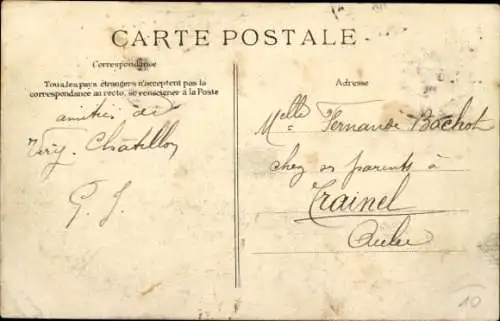 CARTE POSTALE
Correspondance
Tous les pays étrangers n'acceptent pas la
correspondance au recto, se renseigner à la Poste
amitiés de
Viry-Châtillon
G. J.
Adresse
Melle Fernande Bachot
chez ses parents à
Trainel
Aube
10